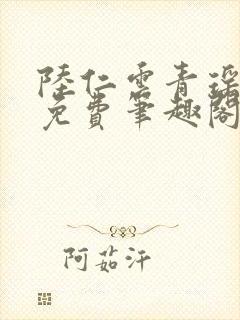 陸仁雲青瑶
免費筆趣閣
阿茹汗